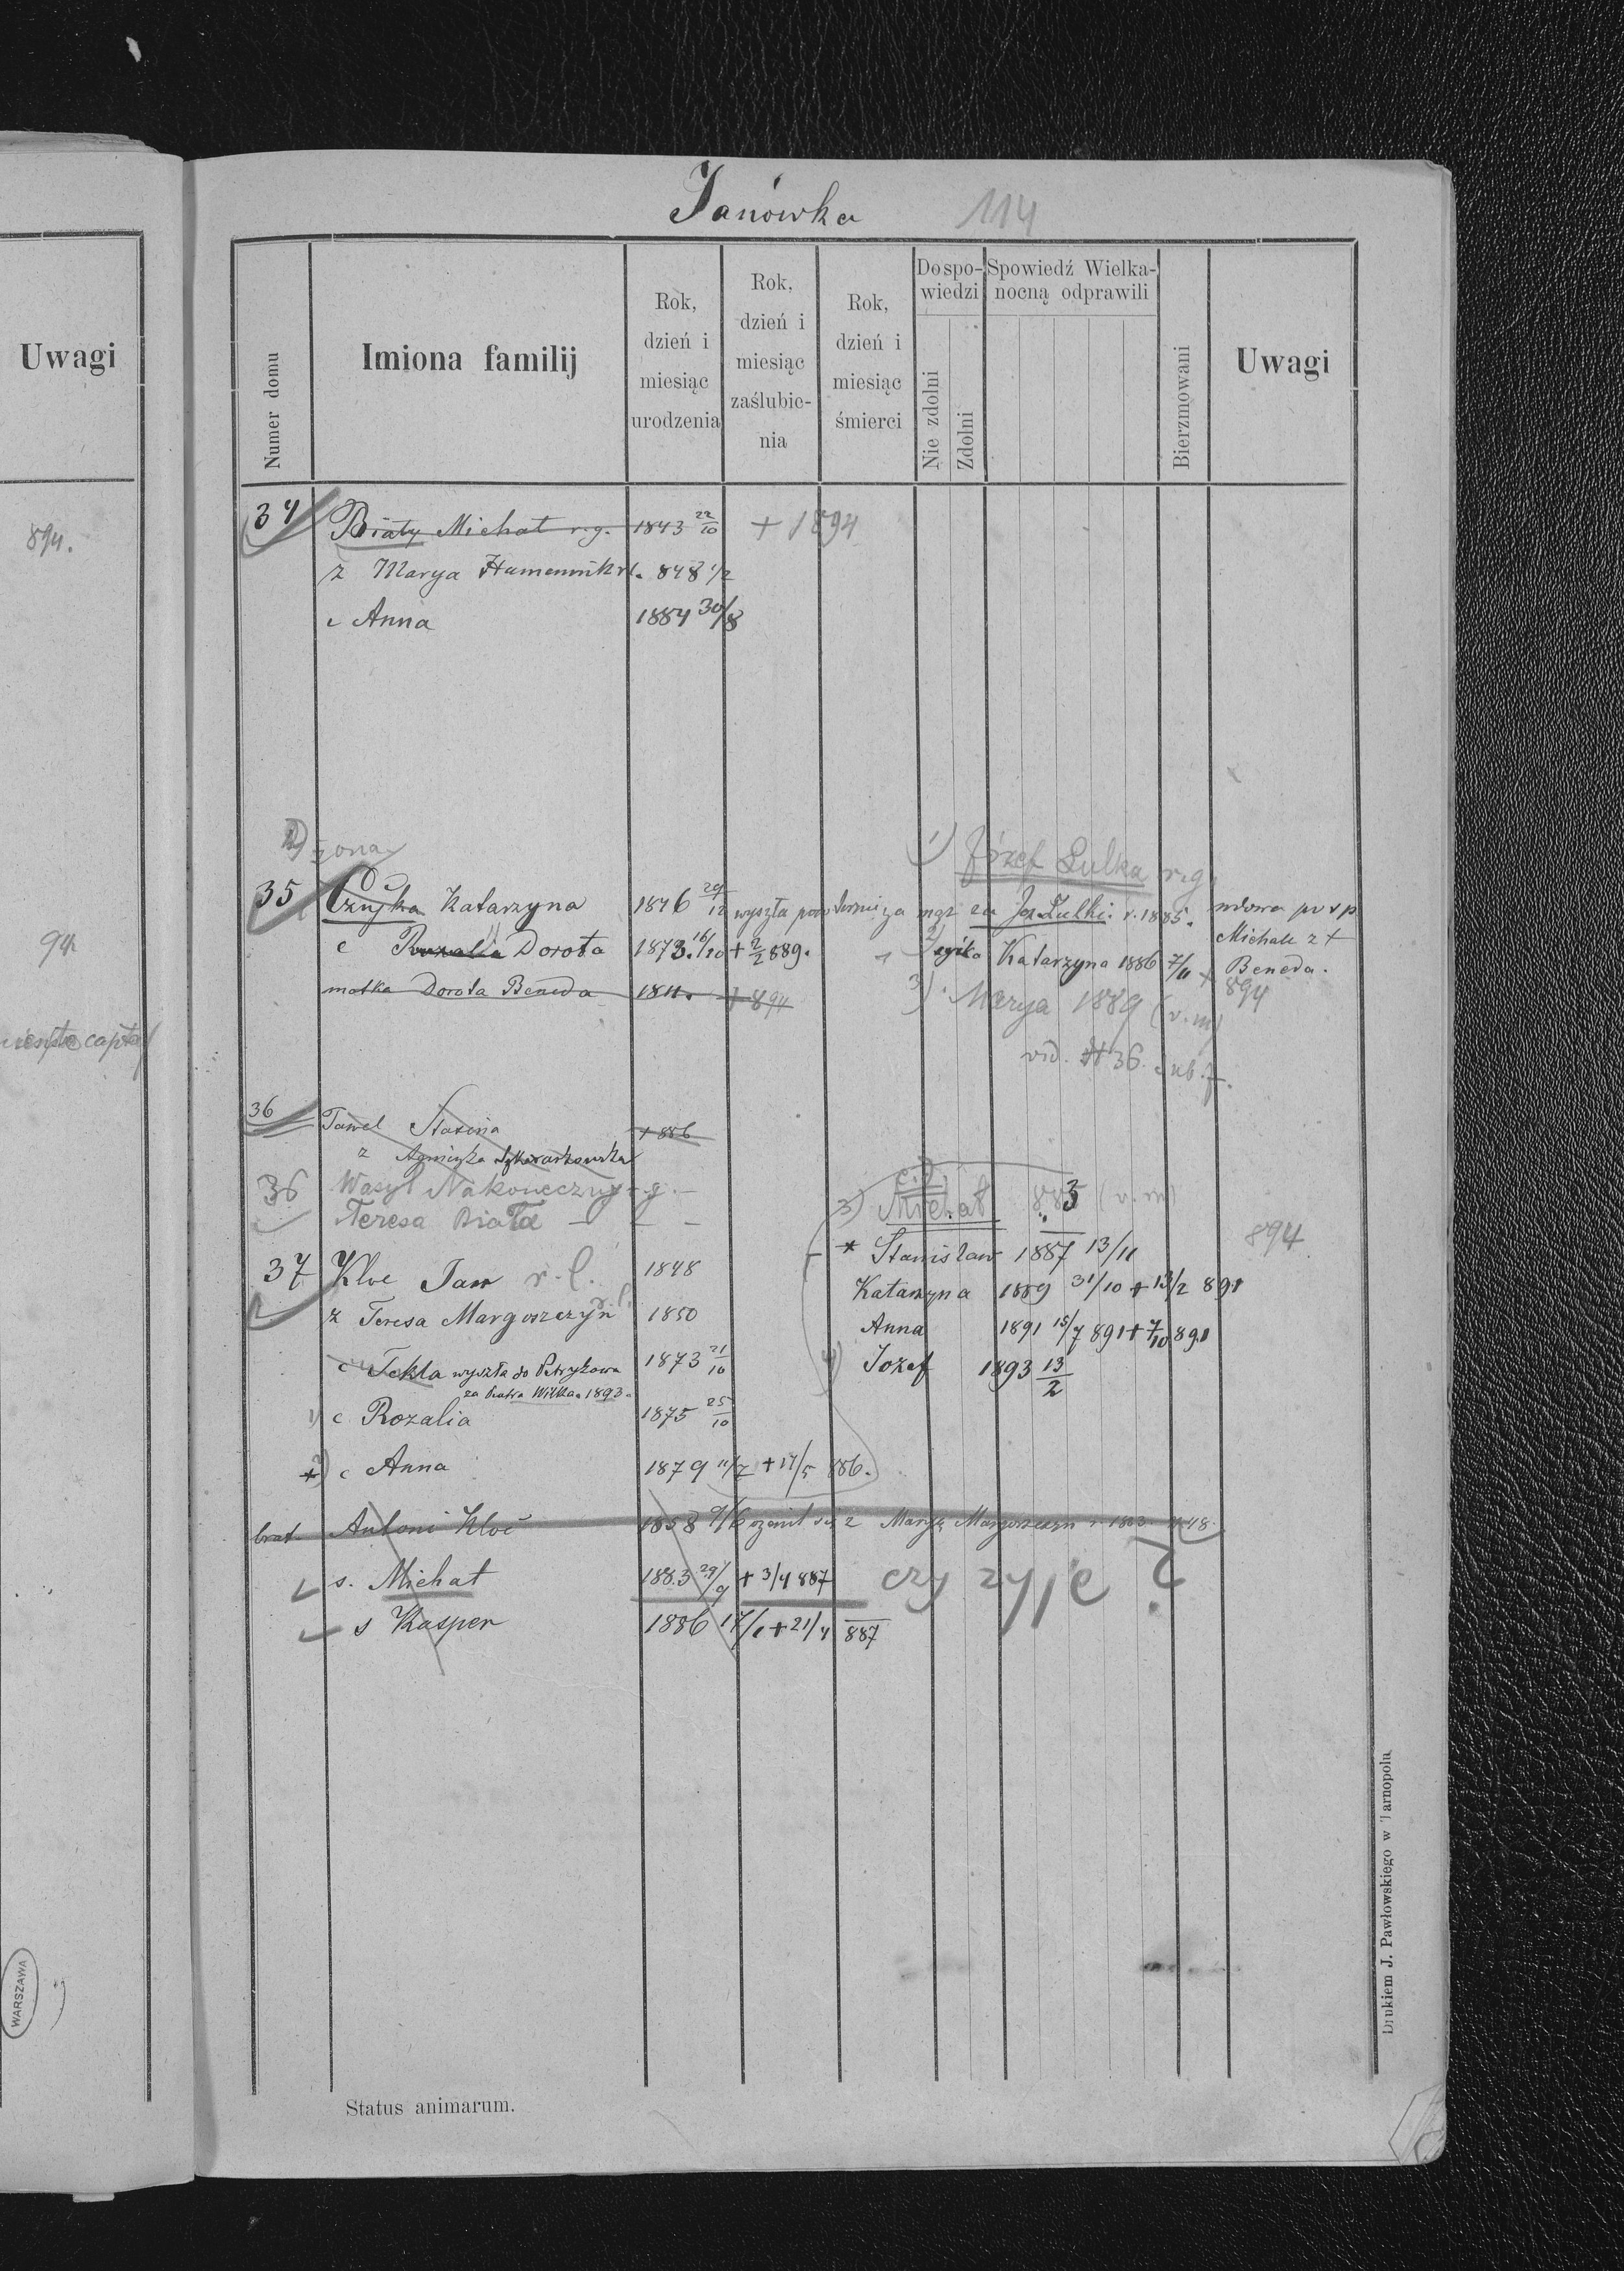 Uwagi
894.
94
WARSZAWA
Janówka 114
Numer domu
Imiona familij
Rok, dzień i miesiąc urodzenia
Rok, dzień i miesiąc zaślubienia
Rok, dzień i miesiąc śmierci
Do spowiedzi
Nie zdolni
Zdolni
Spowiedź Wielkanocną odprawili
Bierzmowani
Uwagi
34 Biały Michał r.g. 1843 22/10 + 1894
ż Marya Humenuik 848 1/2
c Anna 1884 30/8
2) żona
1) Józef Lulka r.g.
35 Czujka Katarzyna 1846 29/12 wyszła za mąż za Joz. Lulki r. 1885. wdowa po
Michale z +
Beneda.
894
c Rozalia Dorota 1873. 16/10 + 2/2 889.
Katarzyna 1886 7/11 +
matka Dorota Beneda 1811. + 894
3) Marya 1889 (v. m)
vid. N 36.
36 Paweł + 886
ż Agnieszka
36 Wasyl Nakoneczny r.g. -
Teresa Biała - - -
37 Kloc Jan r. l. 1848
ż Teresa Margoszczyn 1850
c Tekla wyszła do Petrykowa 1873 21/10
za Piotra Wilka 1893
1) c Rozalia 1875 25/10
+ 2) c Anna 1879 11/7 + 14/5 886.
3) Michał 883 (v. m)
* Stanisław 1887 13/11
894
Katarzyna 1889 31/10 + 13/2 891
Anna 1891 15/7 891 + 7/10 891
4) Jozef 1893 13/2
brat Antoni Kloc 1858 9/6 ożenił się z Maryą Margoszczyn r 1883 N 48
s. Michał 1883 29/9 + 3/4 887 czy żyje ?
s Kasper 1886 17/1 + 21/4 887
Status animarum.
Drukiem J. Pawłowskiego w Tarnopolu